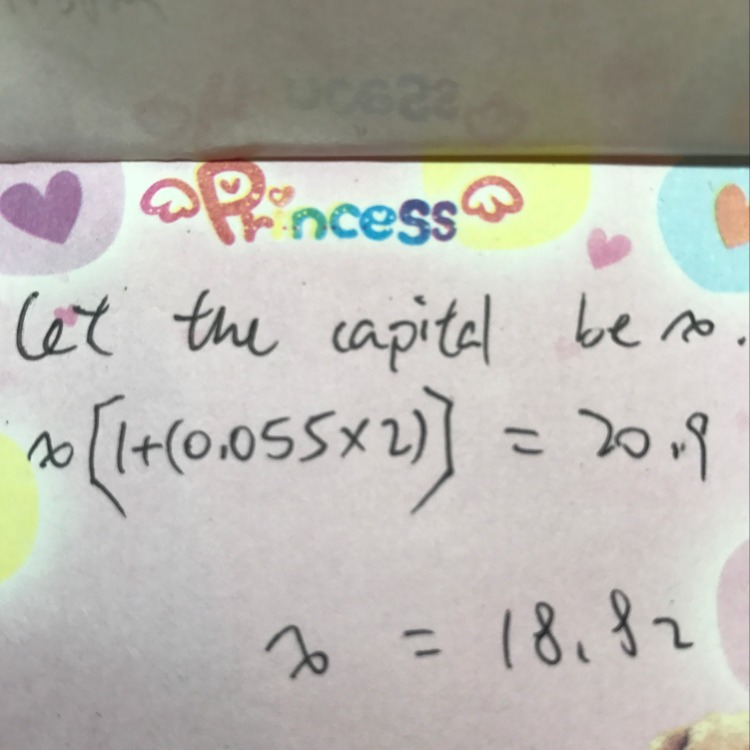 Princess
Let the capital be x.
x[1+(0.055×2)] = 20.9
x = 18.82